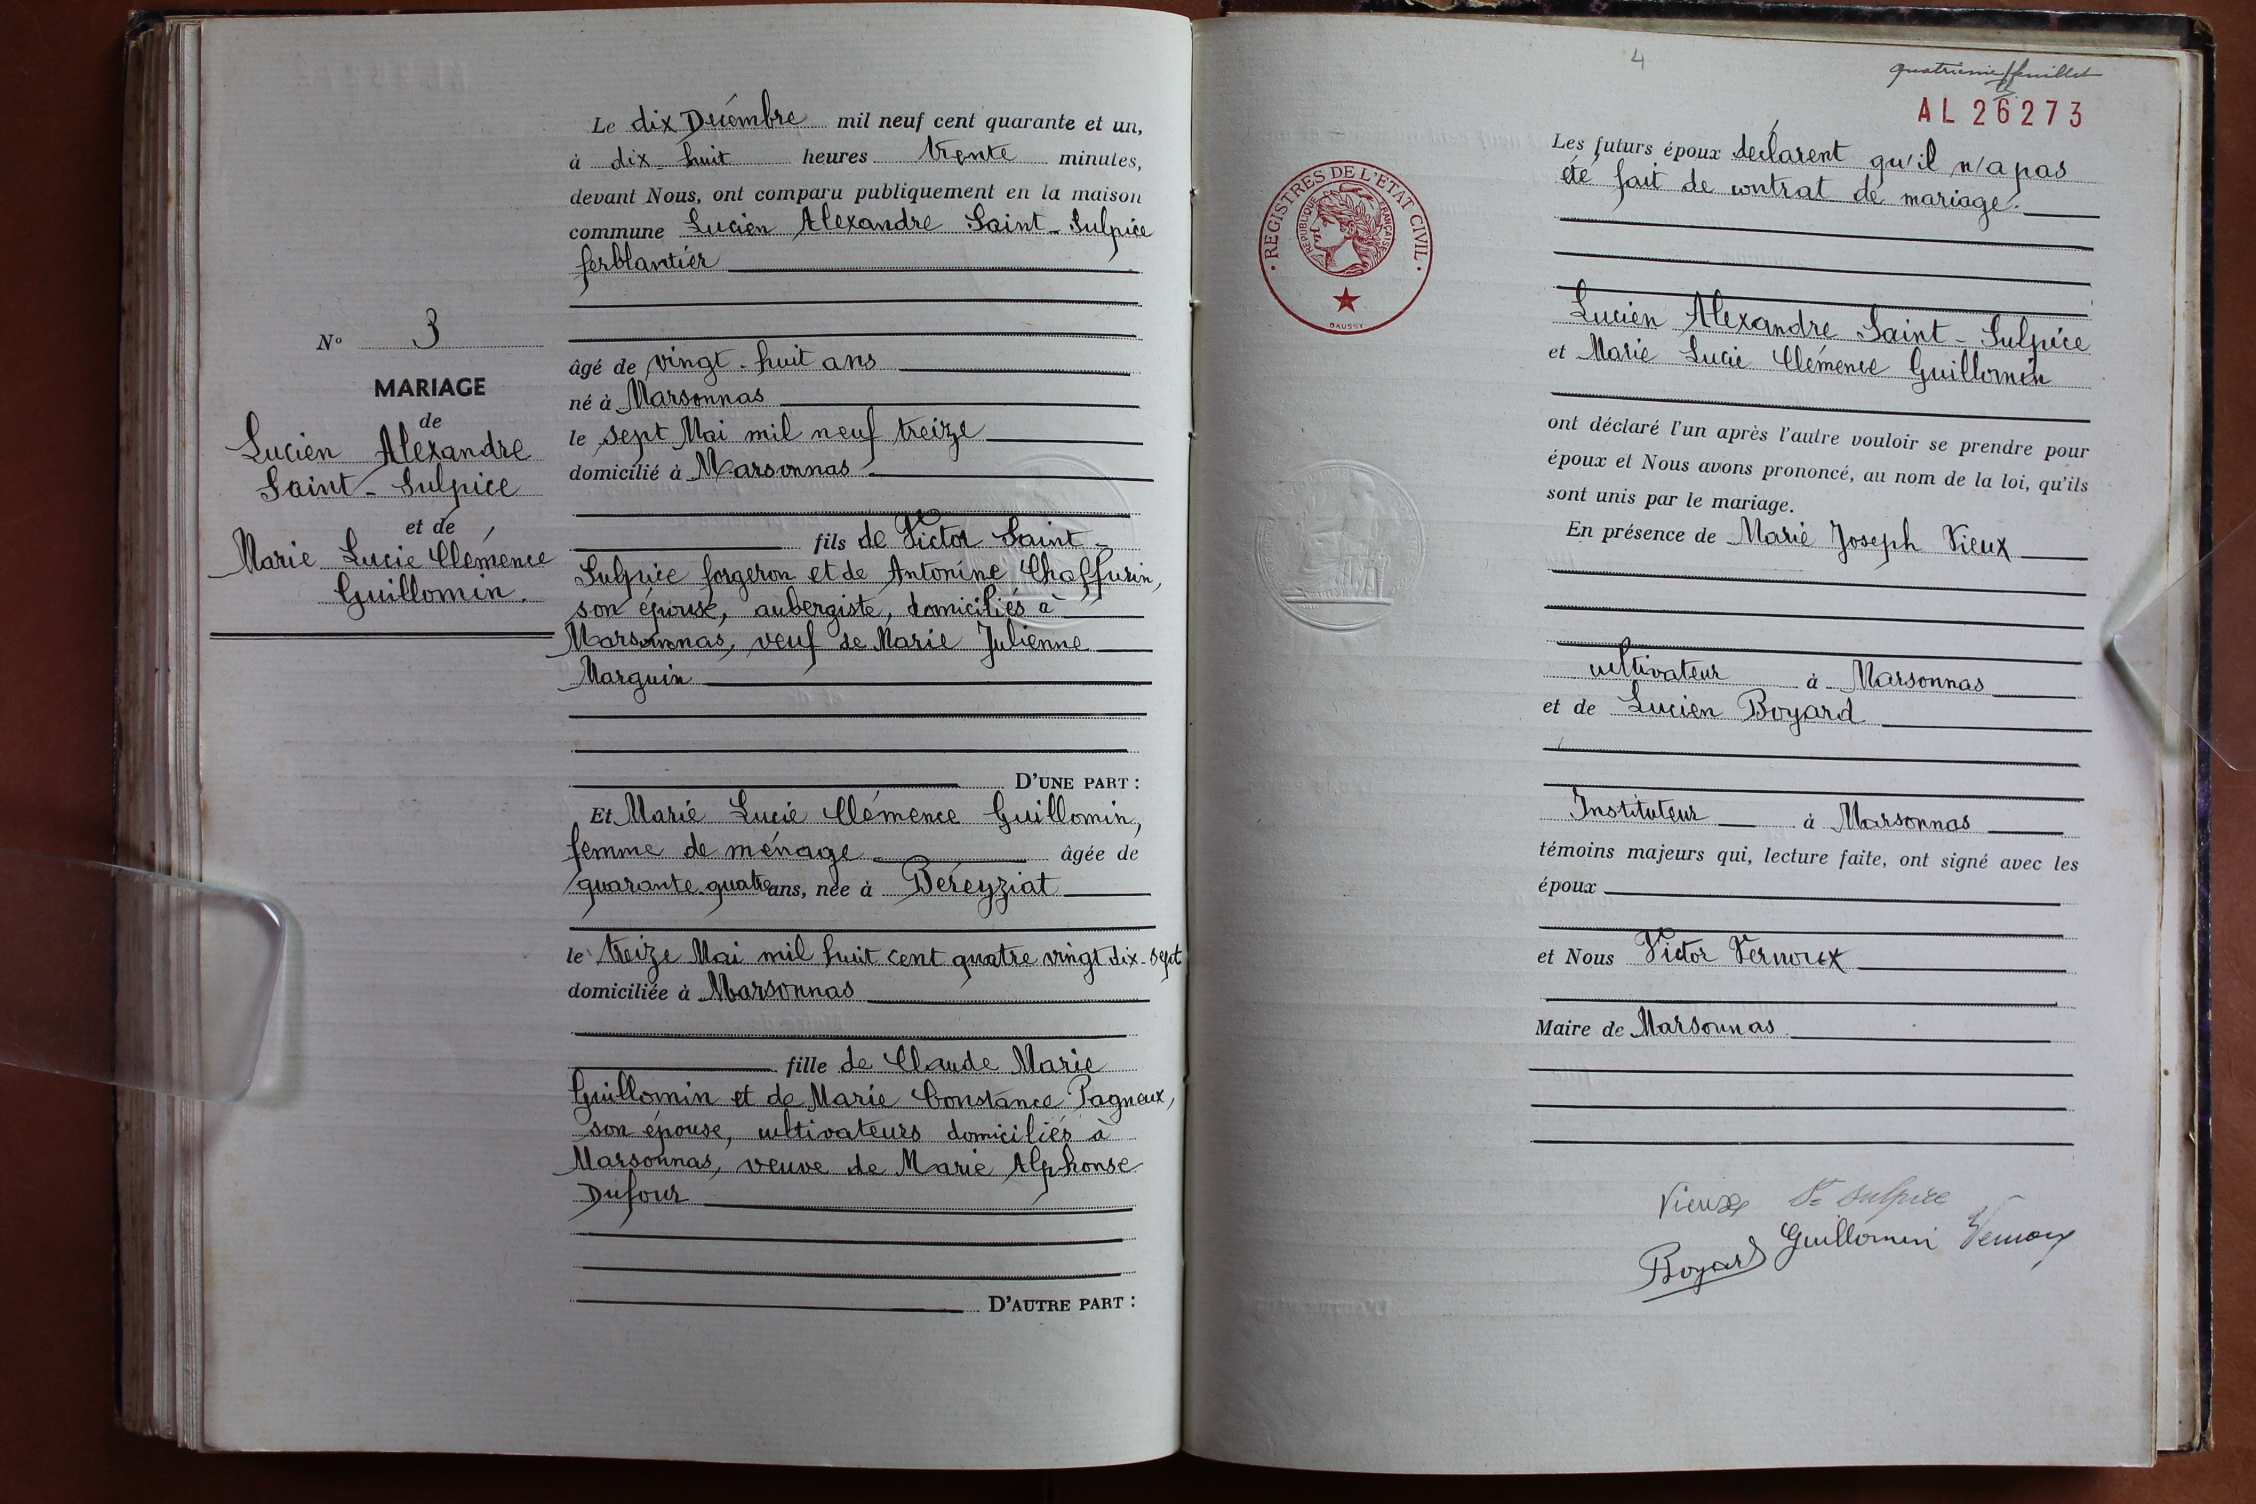 Le dix Décembre mil neuf cent quarante et un,
à dix-huit heures trente minutes,
devant Nous, ont comparu publiquement en la maison
commune Lucien Alexandre Saint-Sulpice
ferblantier
N° 3
MARIAGE
de
Lucien Alexandre
Saint-Sulpice
et de
Marie Lucie Clémence
Guillomin.
âgé de vingt-huit ans
né à Marsonnas
le sept Mai mil neuf treize
domicilié à Marsonnas
fils de Victor Saint-
Sulpice forgeron et de Antonine Chaffurin,
son épouse, aubergiste, domiciliés à
Marsonnas, veuf de Marie Julienne
Marguin
D'UNE PART :
Et Marie Lucie Clémence Guillomin,
femme de ménage âgée de
quarante-quatre ans, née à Béréyziat
le treize Mai mil huit cent quatre vingt dix-sept
domiciliée à Marsonnas
fille de Claude Marie
Guillomin et de Marie Constance Pagneux,
son épouse, cultivateurs domiciliés à
Marsonnas, veuve de Marie Alphonse
Dufour
D'AUTRE PART :
4
quatrième feuillet
AL 26273
REGISTRES DE L'ETAT CIVIL
REPUBLIQUE FRANÇAISE
DAUSSY
Les futurs époux déclarent qu'il n'a pas
été fait de contrat de mariage.
Lucien Alexandre Saint-Sulpice
et Marie Lucie Clémence Guillomin
ont déclaré l'un après l'autre vouloir se prendre pour
époux et Nous avons prononcé, au nom de la loi, qu'ils
sont unis par le mariage.
En présence de Marie Joseph Vieux
cultivateur à Marsonnas
et de Lucien Boyard
Instituteur à Marsonnas
témoins majeurs qui, lecture faite, ont signé avec les
époux
et Nous Victor Vernoux
Maire de Marsonnas
Vieux St Sulpice
Boyard Guillomin Vernoux